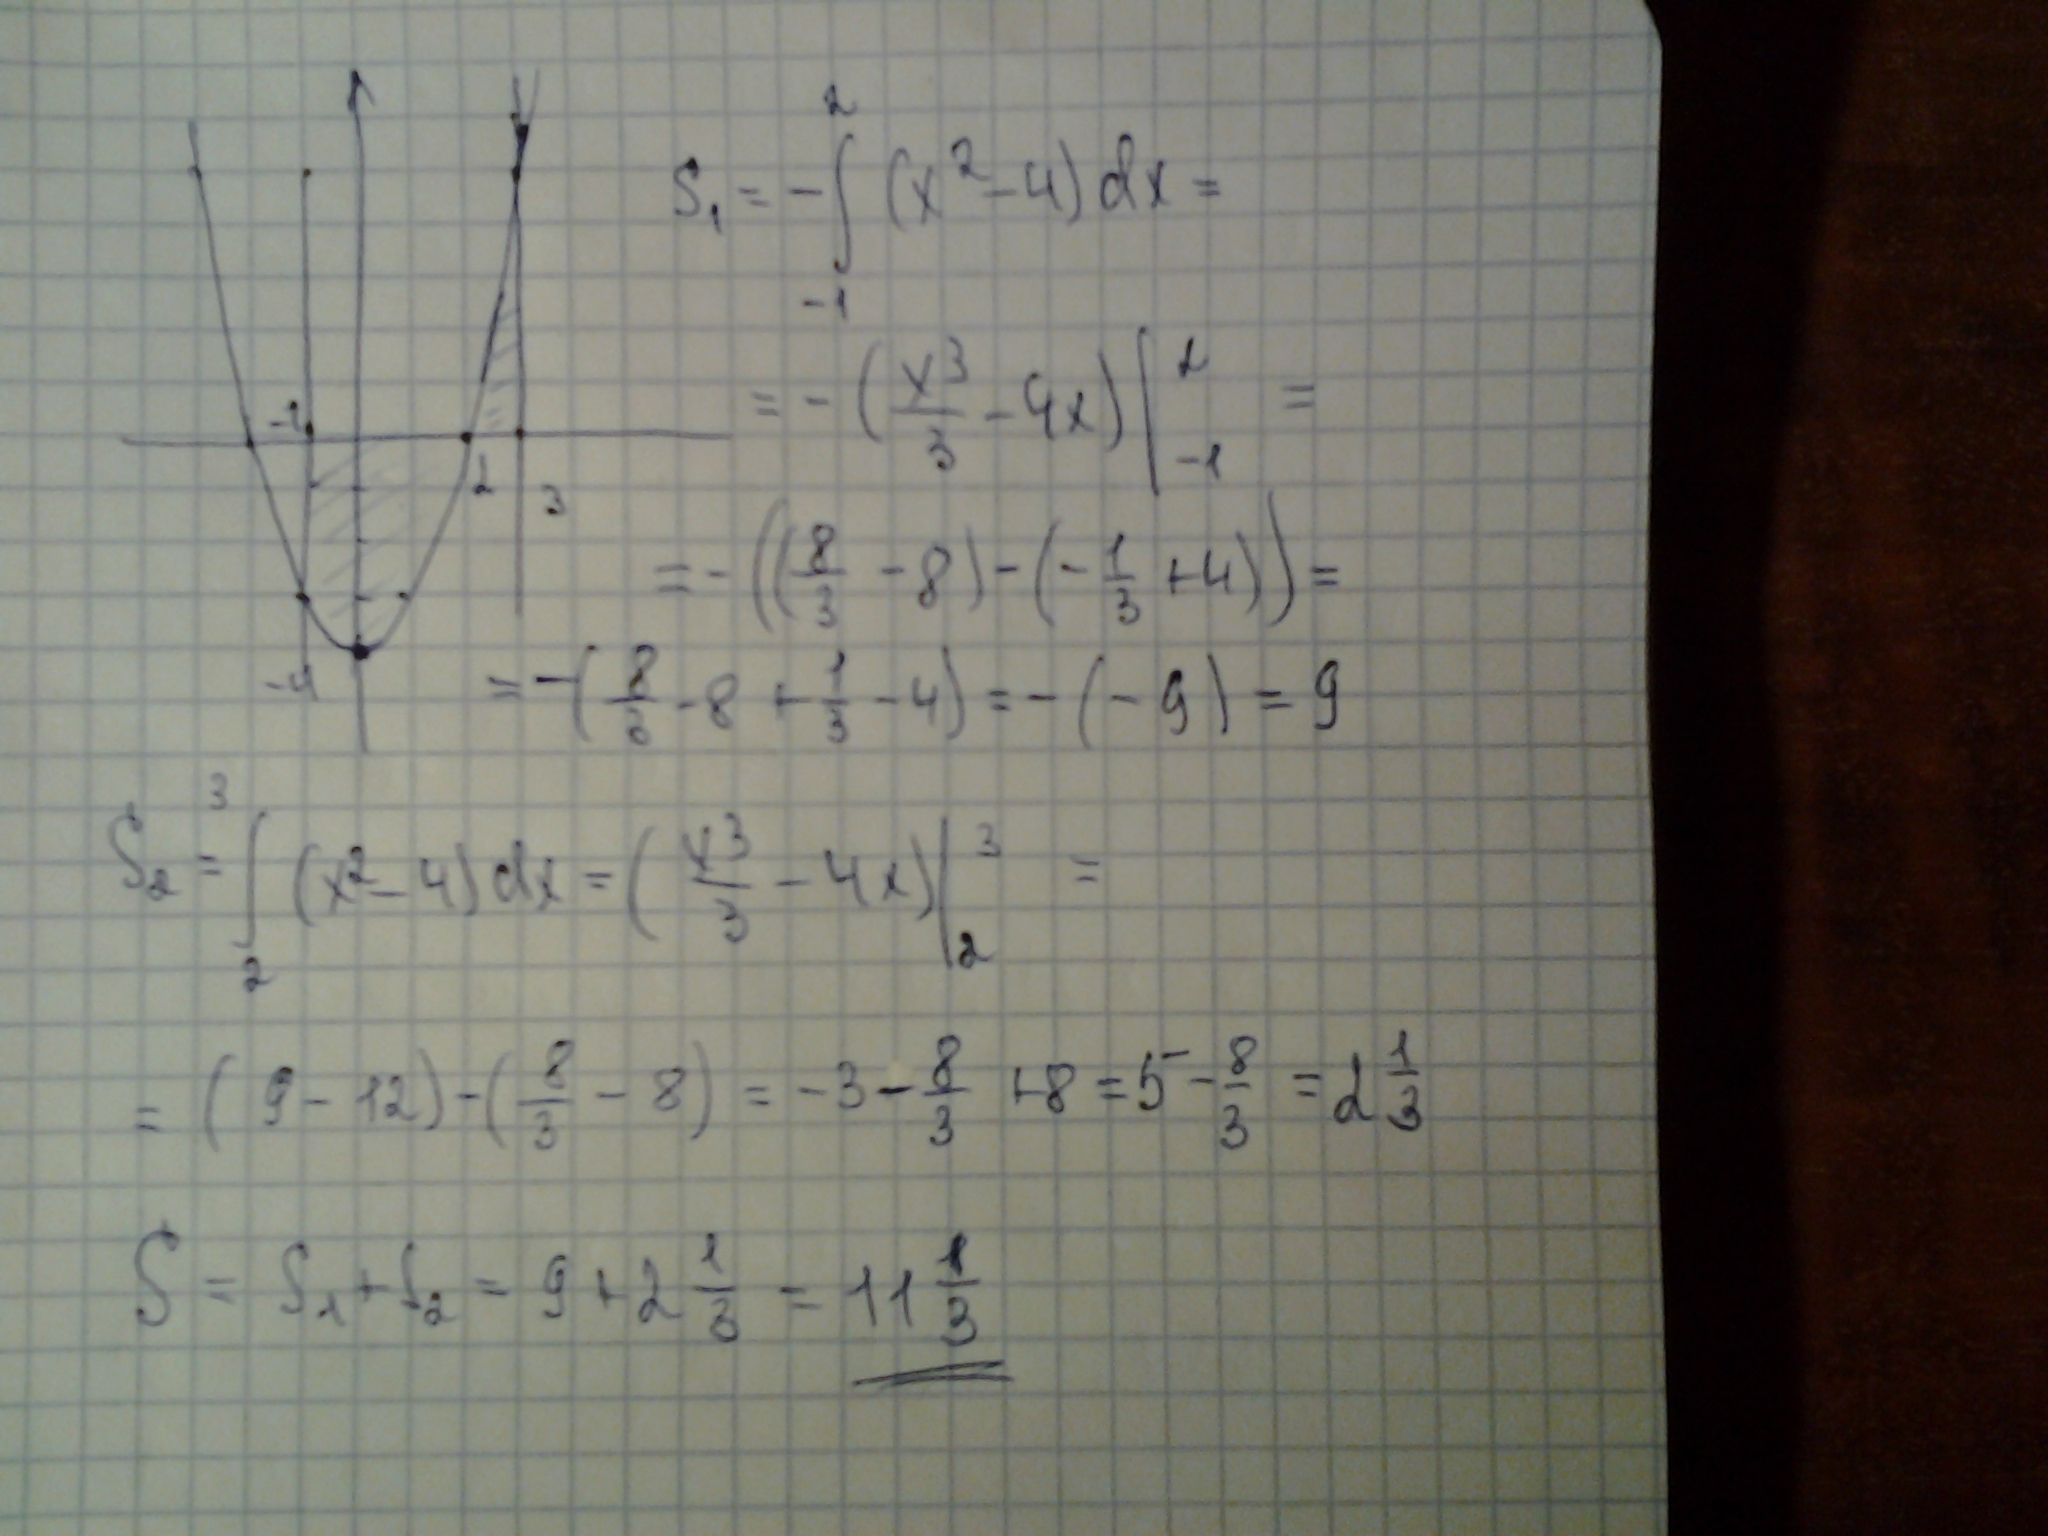 -1
2
3
-4
S₁ = -∫₋₁² (x² - 4) dx =
= -(x³/3 - 4x)|₋₁² =
= -((8/3 - 8) - (-1/3 + 4)) =
= -(8/3 - 8 + 1/3 - 4) = -(-9) = 9
S₂ = ∫₂³ (x² - 4) dx = (x³/3 - 4x)|₂³ =
= (9 - 12) - (8/3 - 8) = -3 - 8/3 + 8 = 5 - 8/3 = 2 1/3
S = S₁ + S₂ = 9 + 2 1/3 = 11 1/3